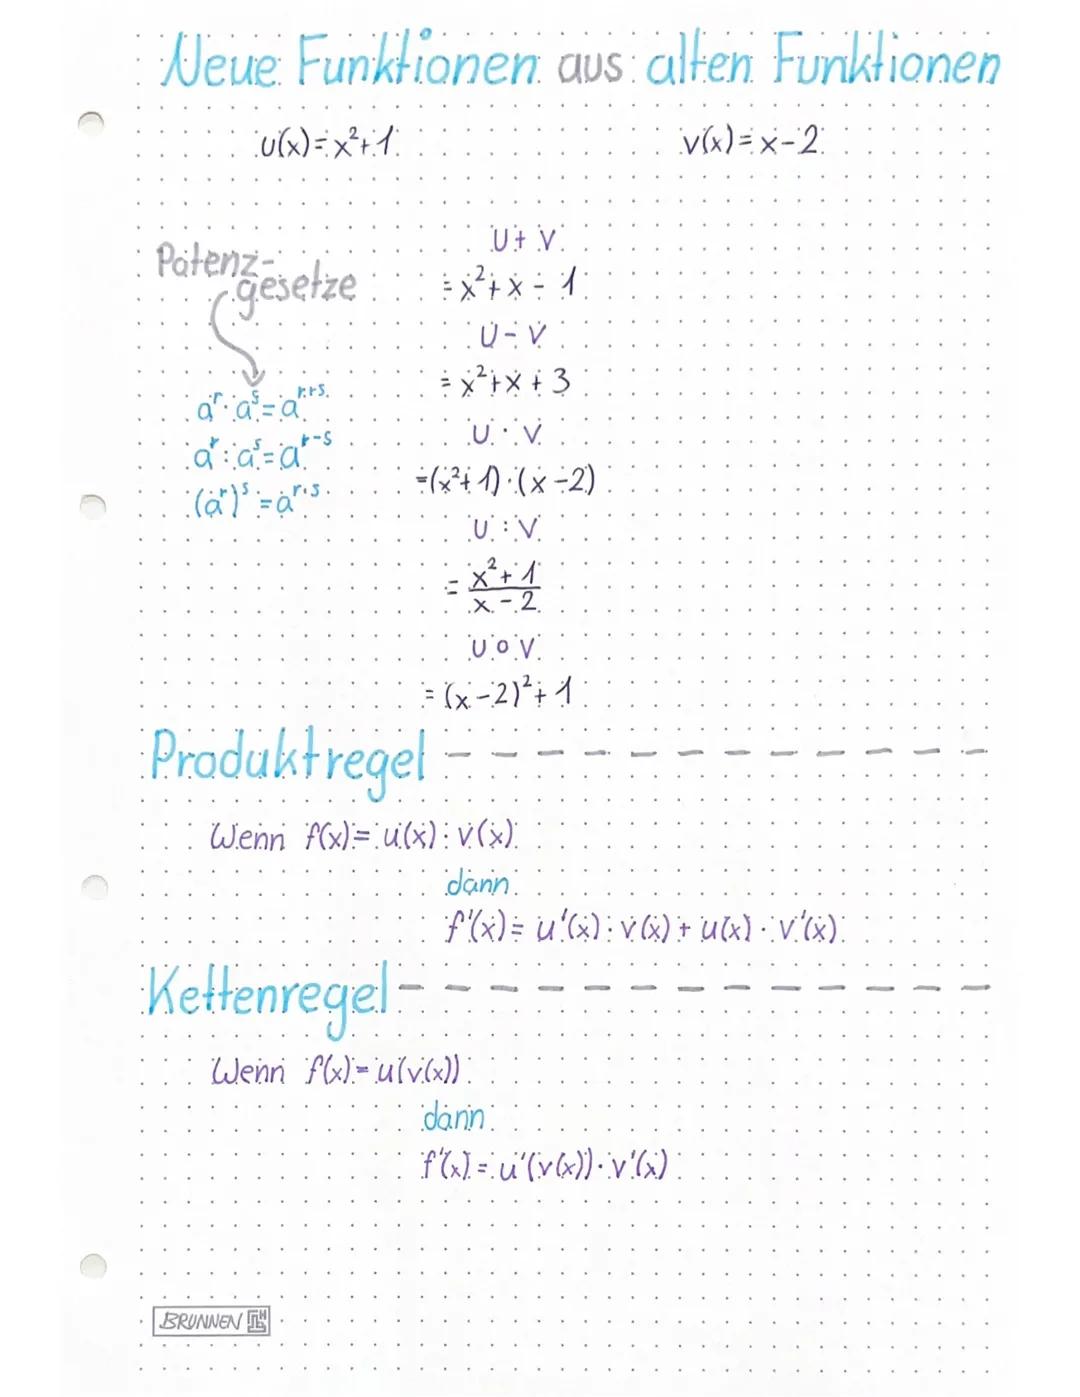 Neue Funktionen aus alten Funktionen
u(x)=x²+1
v(x)=x-2
Potenz-
gesetze
aʳ·aˢ=aʳ⁺ˢ
aʳ:aˢ=aʳ⁻ˢ
(aʳ)ˢ=aʳ·ˢ
U+V
=x²+x-1
U-V
=x²+x+3
U·V
=(x²+1)·(x-2)
U:V
=
x²+1
x-2
U∘V
=(x-2)²+1
Produktregel
Wenn f(x)=u(x)·v(x)
dann
f'(x)=u'(x)·v(x)+u(x)·v'(x)
Kettenregel
Wenn f(x)=u(v(x))
dann
f'(x)=u'(v(x))·v'(x)
BRUNNEN